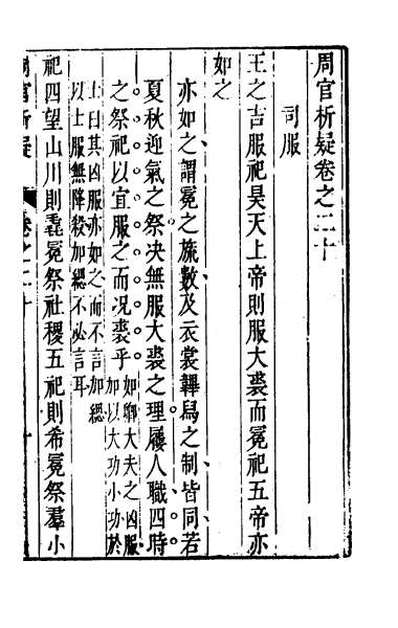 周官析疑卷之二十
司服
王之吉服祀昊天上帝則服大裘而冕祀五帝亦
如之
亦如之謂冕之旒數及衣裳韠舄之制皆同若
夏秋迎氣之祭决無服大裘之理屨人職四時
之祭祀以宜服之而况裘乎
如卿大夫之凶服
加以大功小功於
上曰其凶服亦如之而不言加緦
以士服無降殺加緦不必言耳
祀四望山川則毳冕祭社稷五祀則希冕祭羣小
周官析疑
卷之二十